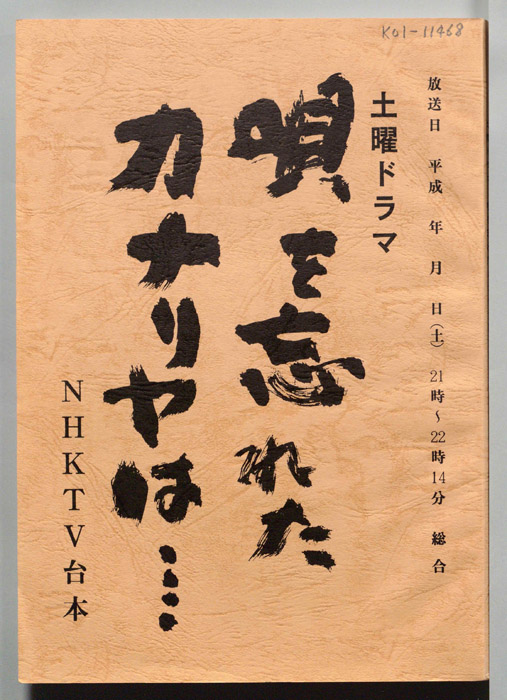 K01-11468
放送日 平成 年 月 日(土) 21時～22時14分 総合
土曜ドラマ
唄を忘れた
カナリヤは…
NHKTV台本